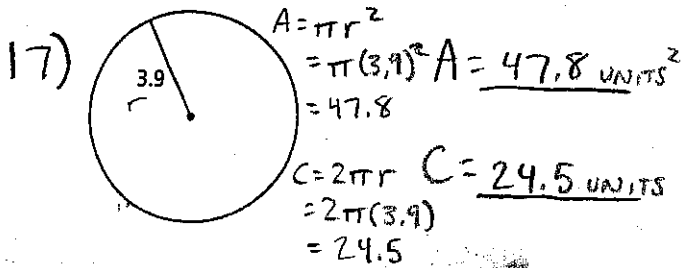 17)
3.9
r
A = πr²
= π(3.9)²
= 47.8
A = 47.8 UNITS²
C = 2πr
= 2π(3.9)
= 24.5
C = 24.5 UNITS